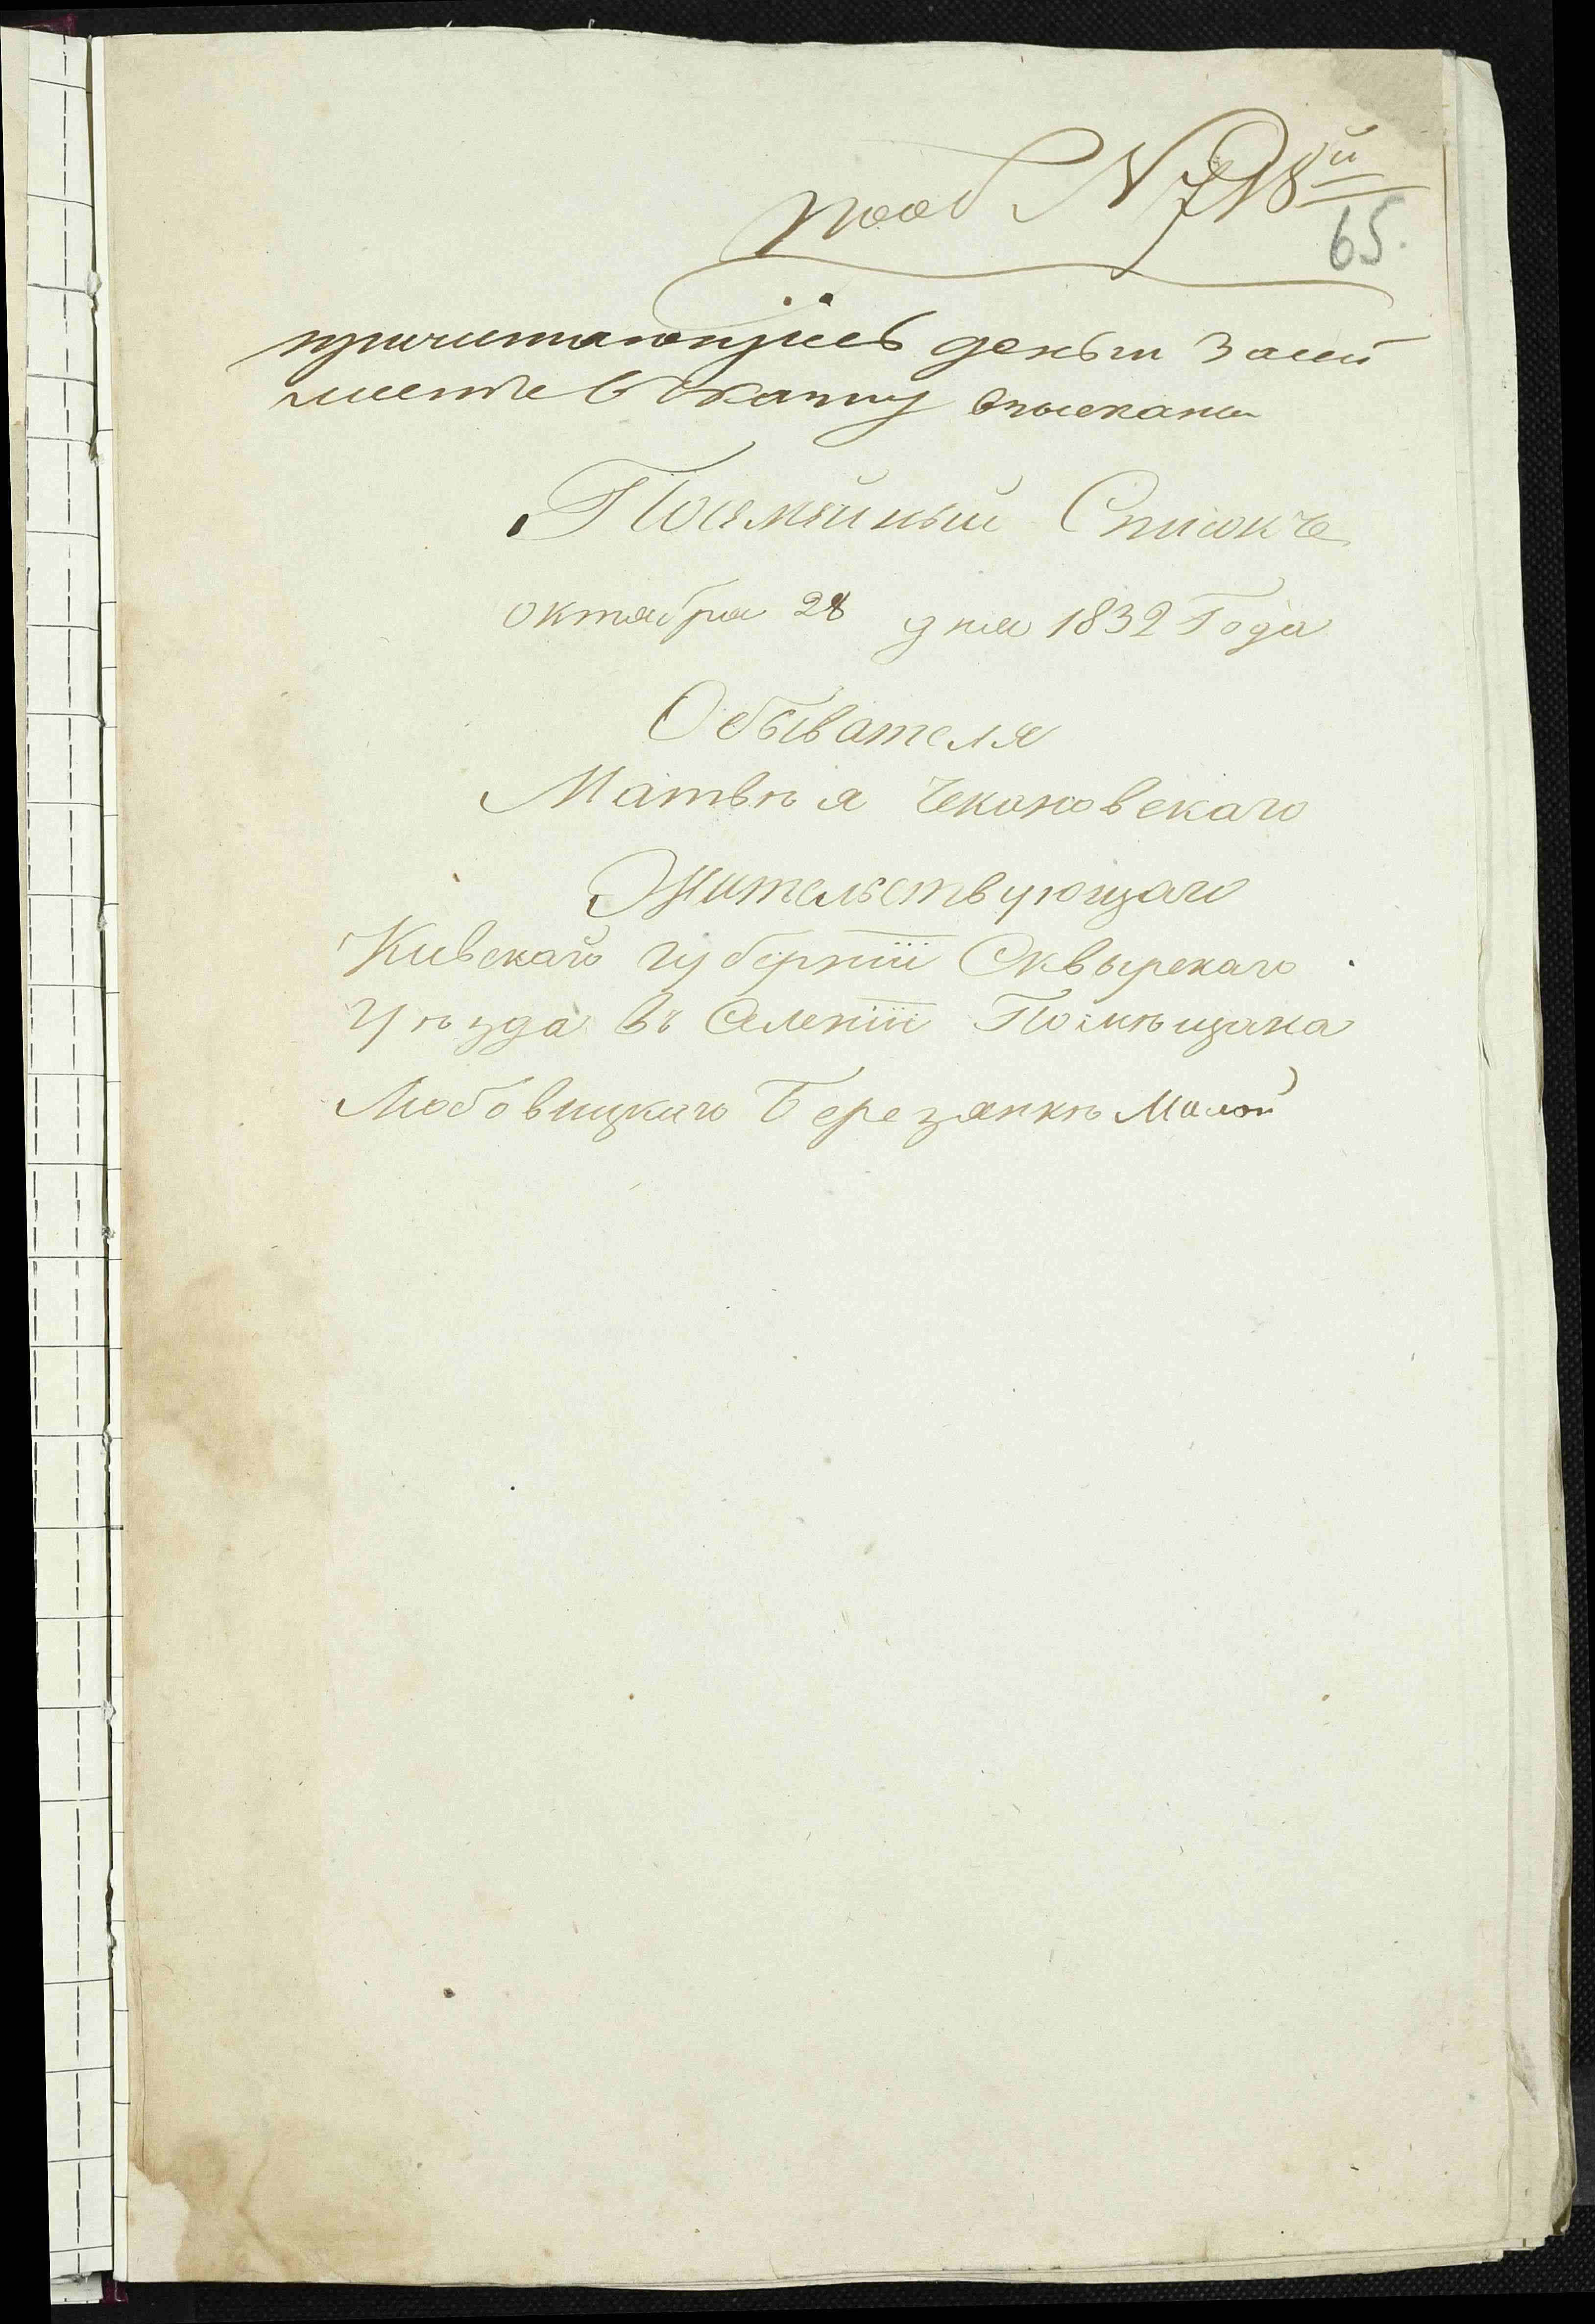 под N 718й
65.
причитающіесь деньги за сей
листъ в скатну взысканы
Посемейный Списокъ
октября 28 дня 1832 Года
Обывателя
Матвѣя Чекановскаго
Жительствующаго
Киевскай губерніи Сквырскаго
Уѣзда въ Селеніи Помѣщика
Любовицкаго Березянкѣ Малой